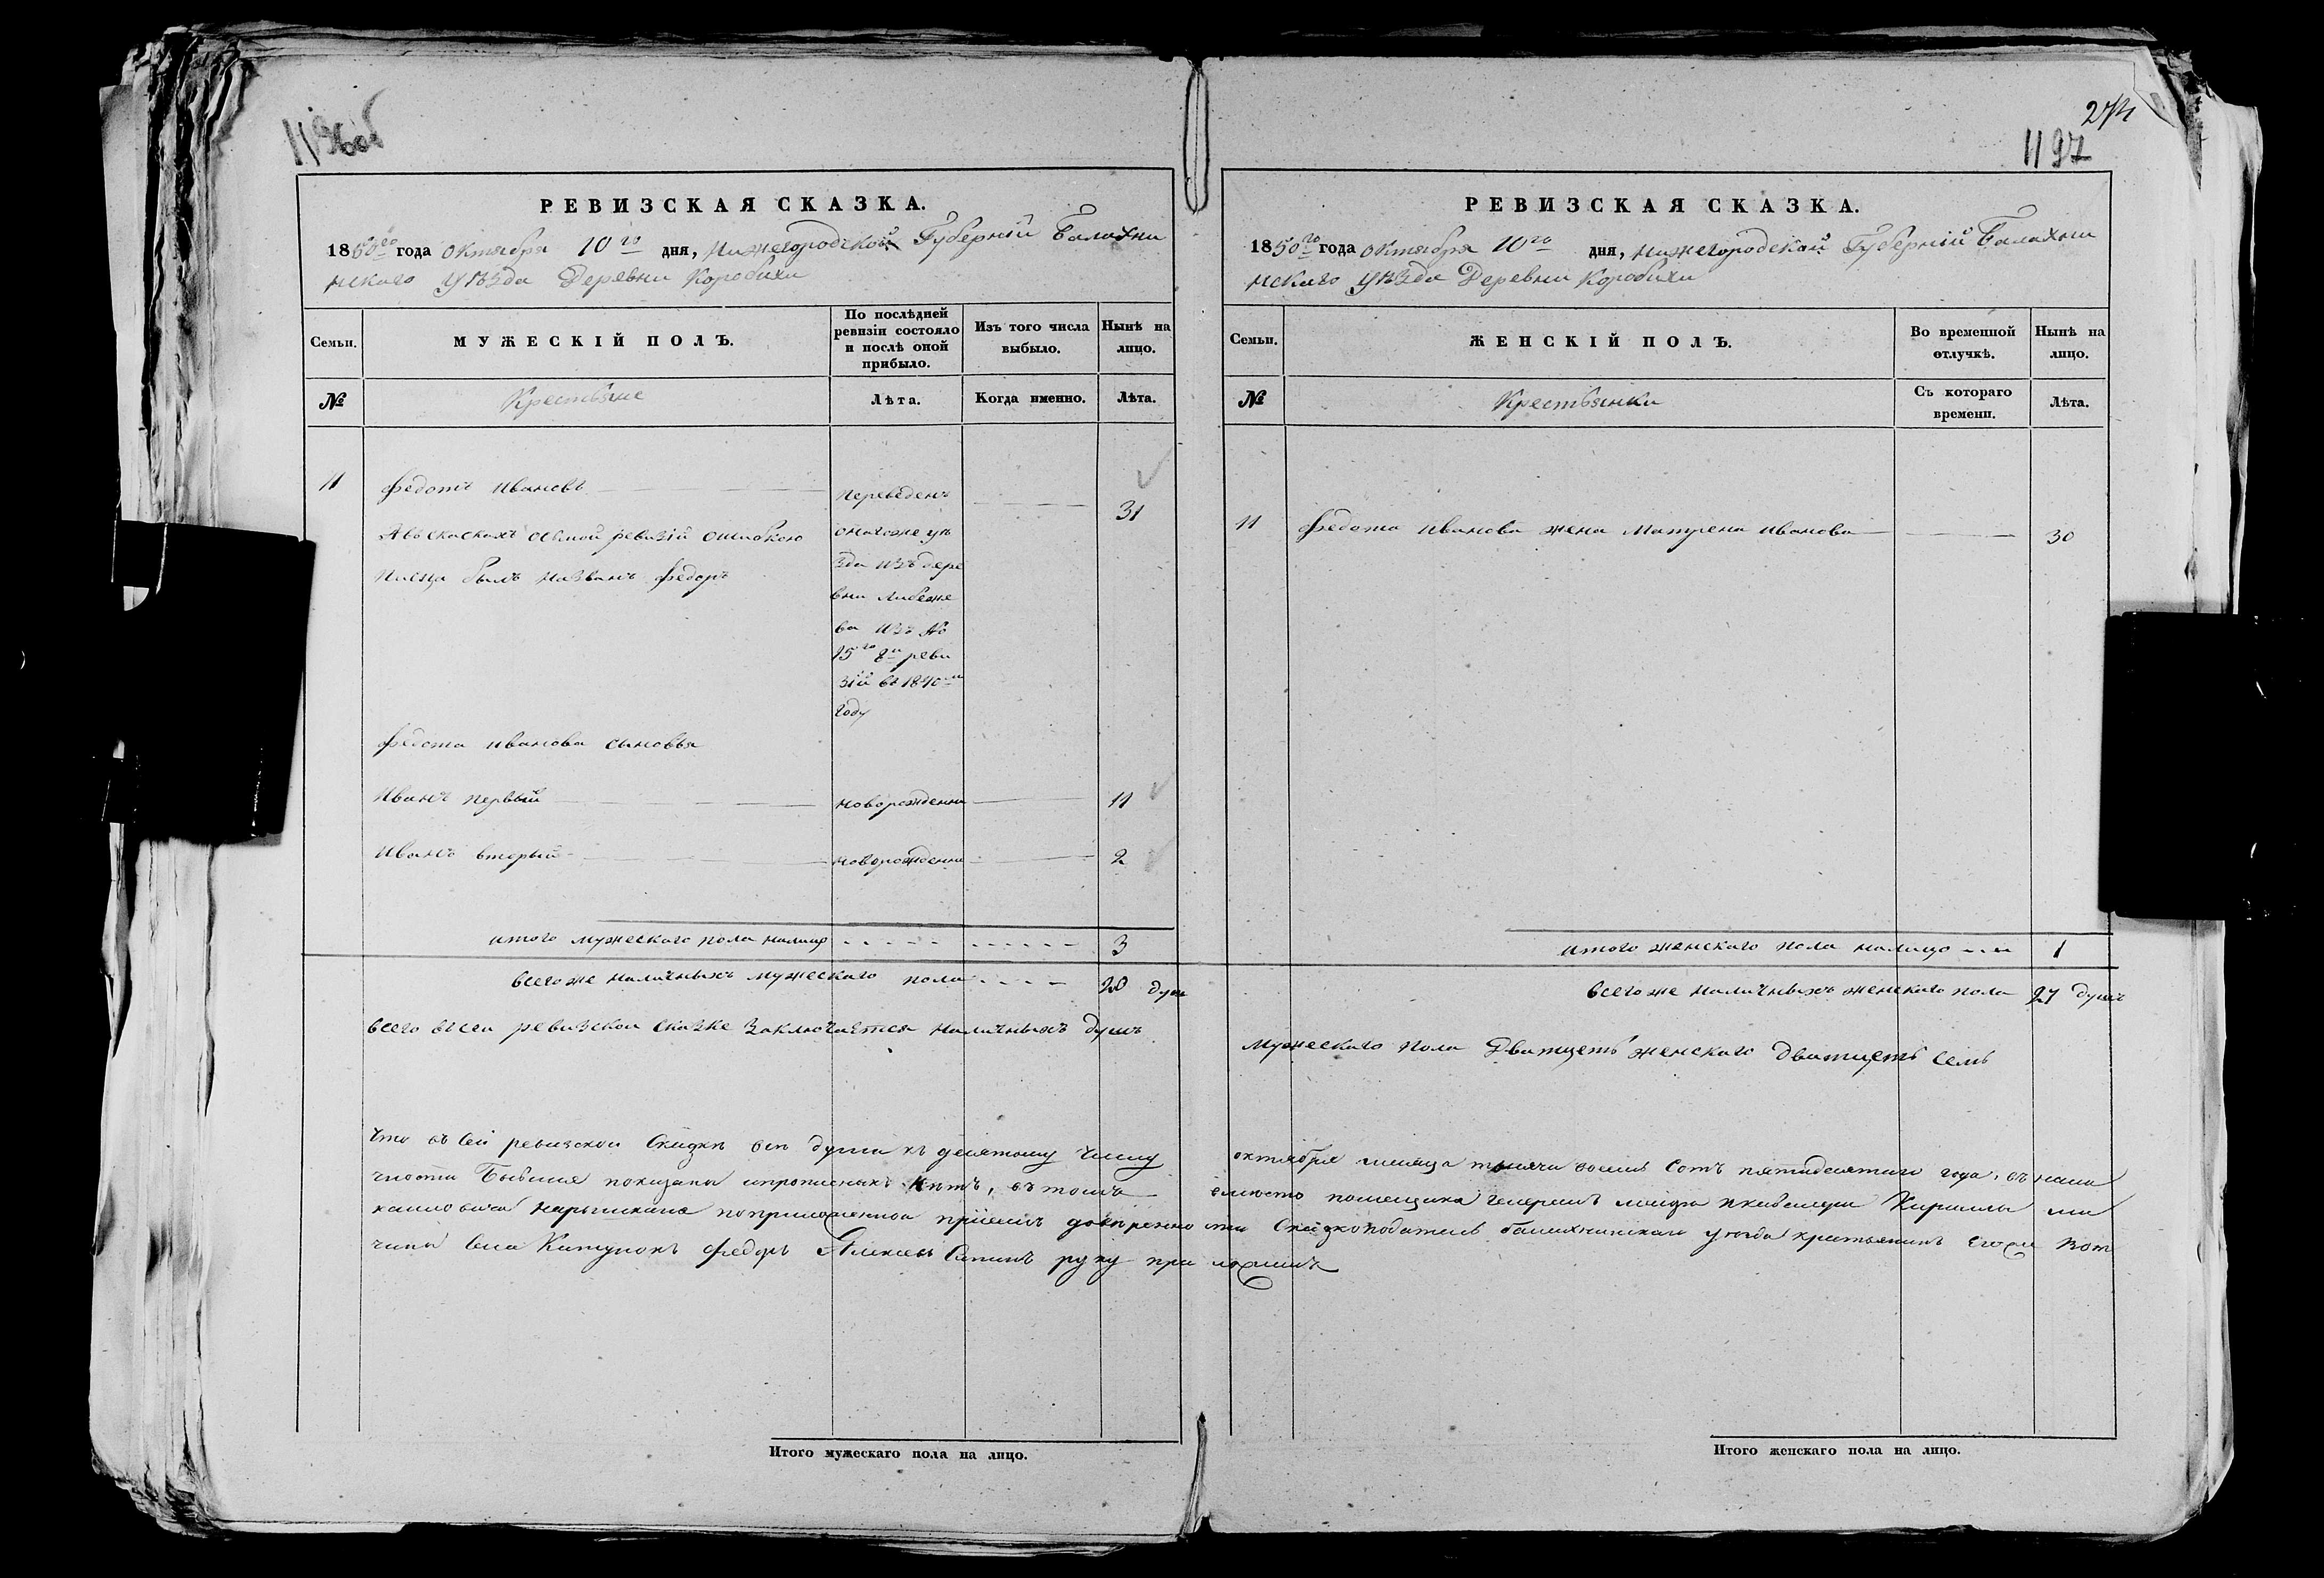 1196об
РЕВИЗСКАЯ СКАЗКА.
1850го года Октября 10го дня, Нижегородской Губерніи Балахни
нскаго уѣзда Деревни Коробихи
Семьи.
МУЖЕСКІЙ ПОЛЪ.
По послѣдней ревизіи состояло и послѣ оной прибыло.
Изъ того числа выбыло.
Нынѣ на лицо.
№
Крестьяне
Лѣта.
Когда именно.
Лѣта.
11
Федотъ Ивановъ
31
А въ сказкахъ осьмой ревизіи ошибкою
писца былъ названъ Федоръ
переведенъ
онаго же уѣ
зда изъ дере
вни
ва изъ №
15го 8й реви
зіи въ 1840м
году
Федота Иванова сыновья
Иванъ первый новорожденны 11
Иванъ вторый новорожденны 2
итого мужескаго пола налицо 3
всего же наличныхъ мужескаго пола 20 душ
всего въ сеи ревизскои сказке заключается наличныхъ душъ
Что въ сей ревизскои Сказкѣ всѣ души къ десятому числу
чности бывшие показаны и прописныхъ нѣтъ, въ томъ
хаиловича Нарышкина по приложенной при семъ довѣренно
чины села Катунокъ Федоръ Алексеевъ руку при
Итого мужескаго пола на лицо.
274
1197
РЕВИЗСКАЯ СКАЗКА.
1850го года Октября 10го дня, Нижегородской Губерніи Балахни
нскаго уѣзда Деревни Коробихи
Семьи.
ЖЕНСКІЙ ПОЛЪ.
Во временной отлучкѣ.
Нынѣ на лицо.
№
Крестьянки
Съ котораго времени.
Лѣта.
11 Федота Иванова жена Матрена Иванова 30
итого женскаго пола налицо 1
всего же наличныхъ женскаго пола 27 душъ
мужескаго пола дватцеть женскаго дватцеть семь
октября месяца тысяча восемь сотъ пятидесятаго года, въ нали
вместо помещика генералъ маиора и кавалера Кирилы ми
сти Сказкоподатель балахнинскаго уезда крестьянинъ Егора вот
ложилъ
Итого женскаго пола на лицо.